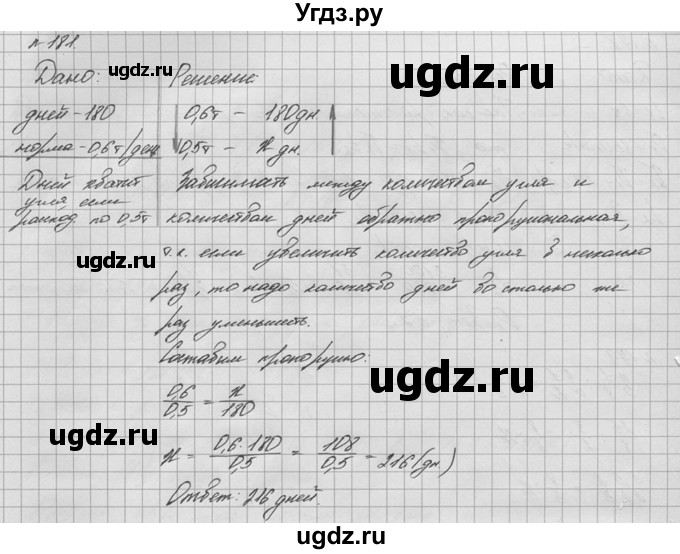 Угдз.ру
№ 181.
Дано: Решение:
дней – 180 0,6т – 180дн.
норма – 0,6т/день 0,5т – х дн.
Дней хватит
угля, если
расход. по 0,5т
Зависимость между количеством угля и
количеством дней обратно пропорциональная,
т.к. если увеличить количество угля в несколько
раз, то надо количество дней во столько же
раз уменьшить.
Составим пропорцию:
0,6/0,5 = х/180
х = 0,6·180/0,5 = 108/0,5 = 216 (дн.)
Ответ: 216 дней.
ugdz.ru
ugdz.ru
ugdz.ru
ugdz.ru
ugdz.ru
ugdz.ru
ugdz.ru
ugdz.ru
ugdz.ru